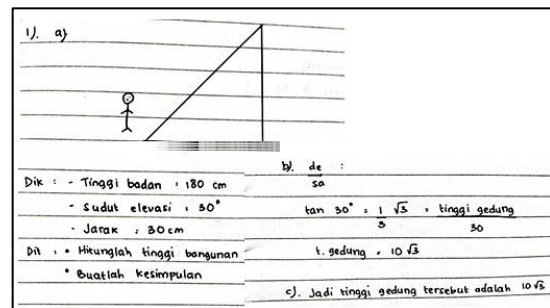 1). a)
Dik : - Tinggi badan : 180 cm
- Sudut elevasi : 30°
- Jarak : 30 cm
Dit : • Hitunglah tinggi bangunan
• Buatlah kesimpulan
b). de :
sa
tan 30° = 1/3 √3 = tinggi gedung / 30
t. gedung = 10√3
c). Jadi tinggi gedung tersebut adalah 10√3